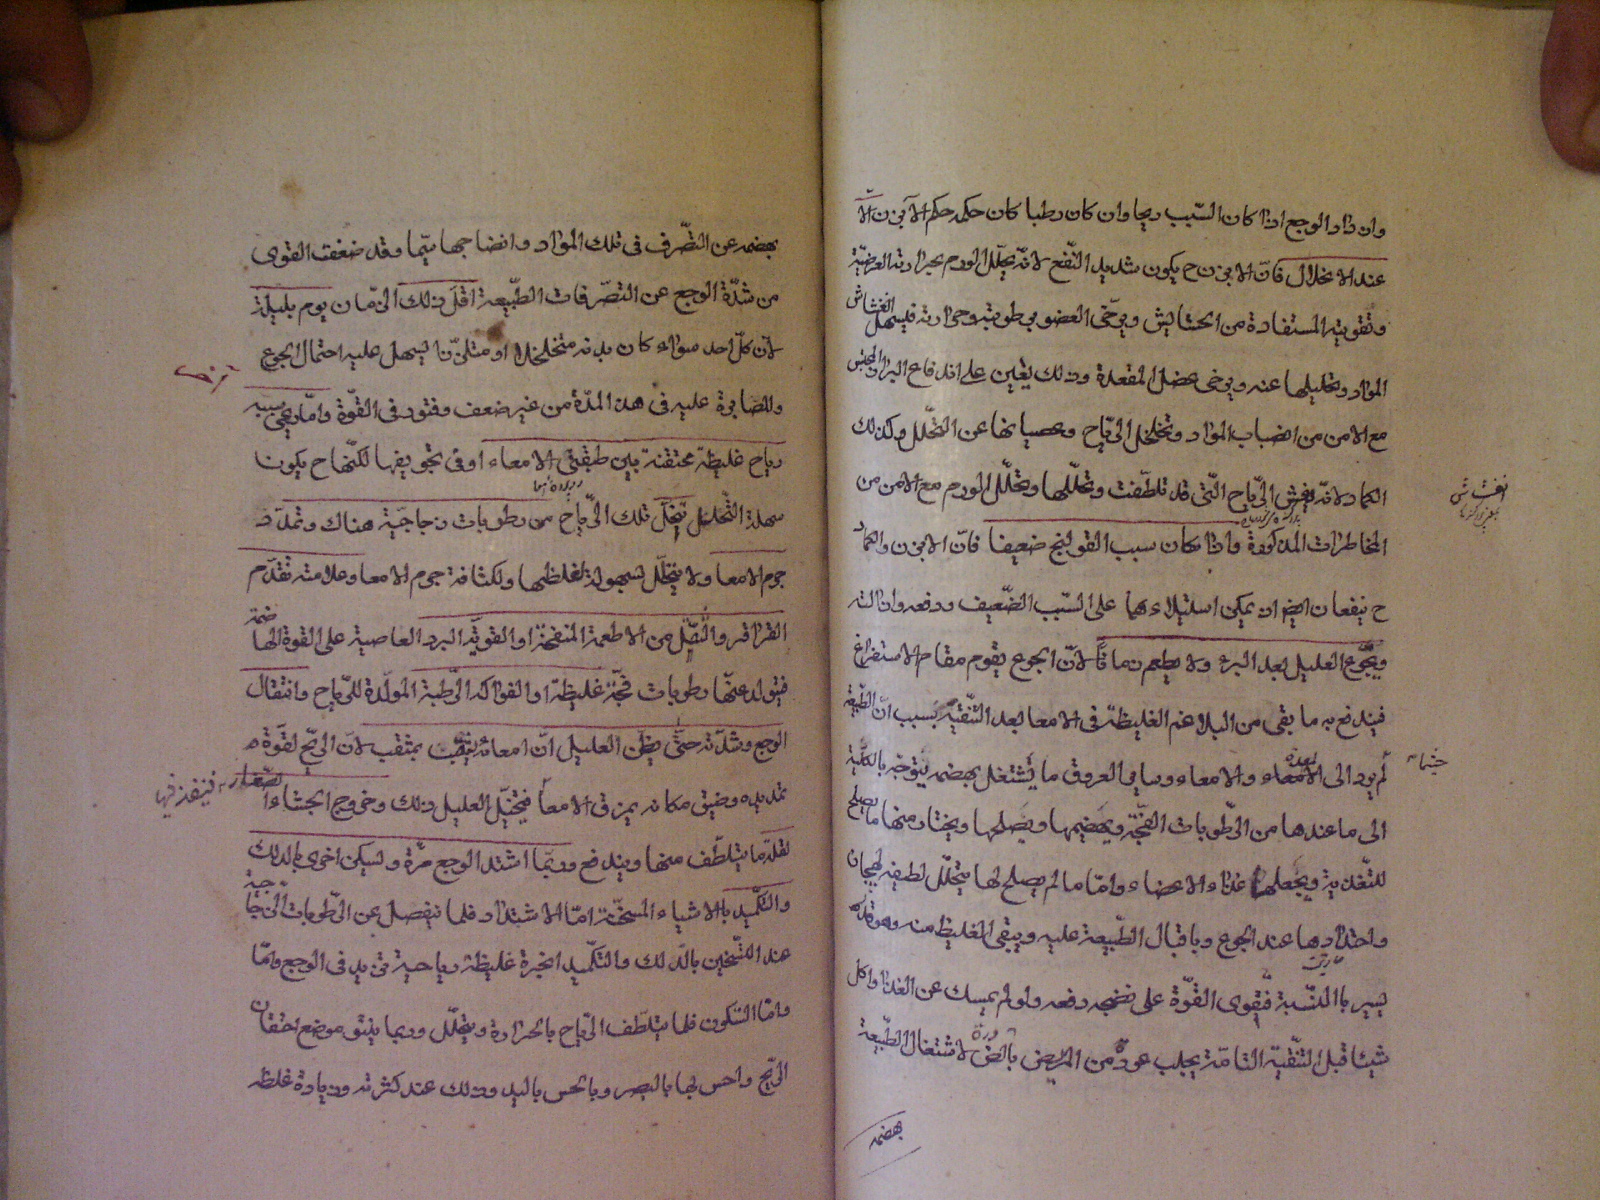 وان زاد الوجع اذا كان السّبب ريحا وان كان رطبا كان حكمه حكم الابزن الا
عند الانحلال فانّ الابزن ح يكون شديد النّفع لانّه يحلّل الورم بحرارته العرضيّة
وتقويته المستفادة من الحشايش ويرخّى العضو برطوبته وحرارته فيسهل انفشاش
المواد وتحليلها عنه ويرخى عضل المقعدة وذلك يعين على اندفاع البراز المحتبس
مع الامن من انصباب المواد وتخلخل الرّياح وعصيانها عن التّحلّل وكذلك
الكماد لانّه يفش الرّياح الّتى قد تلطّفت وتحلّلها ويحلّل الورم مع الامن من
المخاطرات المذكورة واذا كان سبب القولنج ضعيفا فانّ الابزن والكماد
ح ينفعان ايضا ان يمكن استيلاءهما على السّبب الضّعيف ودفعه وازالته
ويجوّع العليل بعد البرء ولا يطعم زمانًا لانّ الجوع يقوم مقام الاستفراغ
فيندفع به ما بقى من البلاغم الغليظة فى الامعا بعد التّنقية بسبب انّ الطّبيعة
لم يرد الى المعدة والامعاء وساير العروق ما يشتغل بهضمه يتوجّه بالكلّية
الى ما عندها من الرّطوبات الفجّة ويهضمها ويصلحها ويختار منها ما يصلح
للتّغذية ويجعلها غذاء الاعضاء وامّا ما لم يصلح لها يتحلّل لطيفه لهيجان
واحتدادها عند الجوع وباقبال الطّبيعة عليه ويبقى الغليظ منه وهو قدر
يسير بالنّسبة فيقوى القوّة على نضجه ودفعه ولو لم يمسك عن الغذا واكل
شيئا قبل التّنقية التامّة يجلب عودة من المرض بالضّرورة لاشتغال الطّبيعة
بهضمه
بهضمه عن التّصّرف فى تلك المواد وانضاجها سيّما وقد ضعفت القوى
من شدّة الوجع عن التصّرفات الطّبيعة اقلّ ذلك الزّمان يوم بليلة
لانّ كلّ احد سواء كان بدنه متخلخلا او متلزّزا يسهل عليه احتمال الجوع
والمصابرة عليه فى هذه المدّة من غير ضعف وفتور فى القوّة وامّا ريحى سببه
رياح غليظة محتقنة بين طبقتى الامعاء او فى تجويفها لكنّها ح يكون
سهلة التّحلّل يتحلّ تلك الرّياح من رطوبات زجاجيّة هناك وتمدّد
جرم الامعا ولا يتحلّل بسهولة لغلظها ولكثافة جرم الامعا وعلامته تقدّم
القراقر والثّقل من الاطعمة المنفخة او القويّه البرد العاصية على القوة الهاضمة
فيتولد عنها رطوبات فجّة غليظة او الفواكه الرّطبة المولّدة للرّياح وانتقال
الوجع وشدّته حتّى يظنّ العليل انّ امعائه يثقب بمثقب لانّ الرّيح لقوّة
تمديده وضيق مكانه يمزق الامعاً فيتخيّل العليل ذلك وخروج الجشاء الصّغار فينفذ فيها
لقلّة ما يتلطّف منها ويندفع وربّما اشتد الوجع مرّة ويسكن اخرى بالدلك
والتكّميد بالاشياء المسخّنة امّا الاشتداد فلما ينفصل عن الرّطوبات الزّجاجية
عند التّسخين بالدّلك والتكّميد ابخرة غليظة رياحية تزيد فى الوجع وامّا
وامّا السّكون فلما يتلطّف الرّياح بالحرارة ويتحلّل وربما ينتو موضع احتقان
الرّيح واحس لها بالبصر وبالحس باليد وذلك عند كثرته وزيادة غلظه